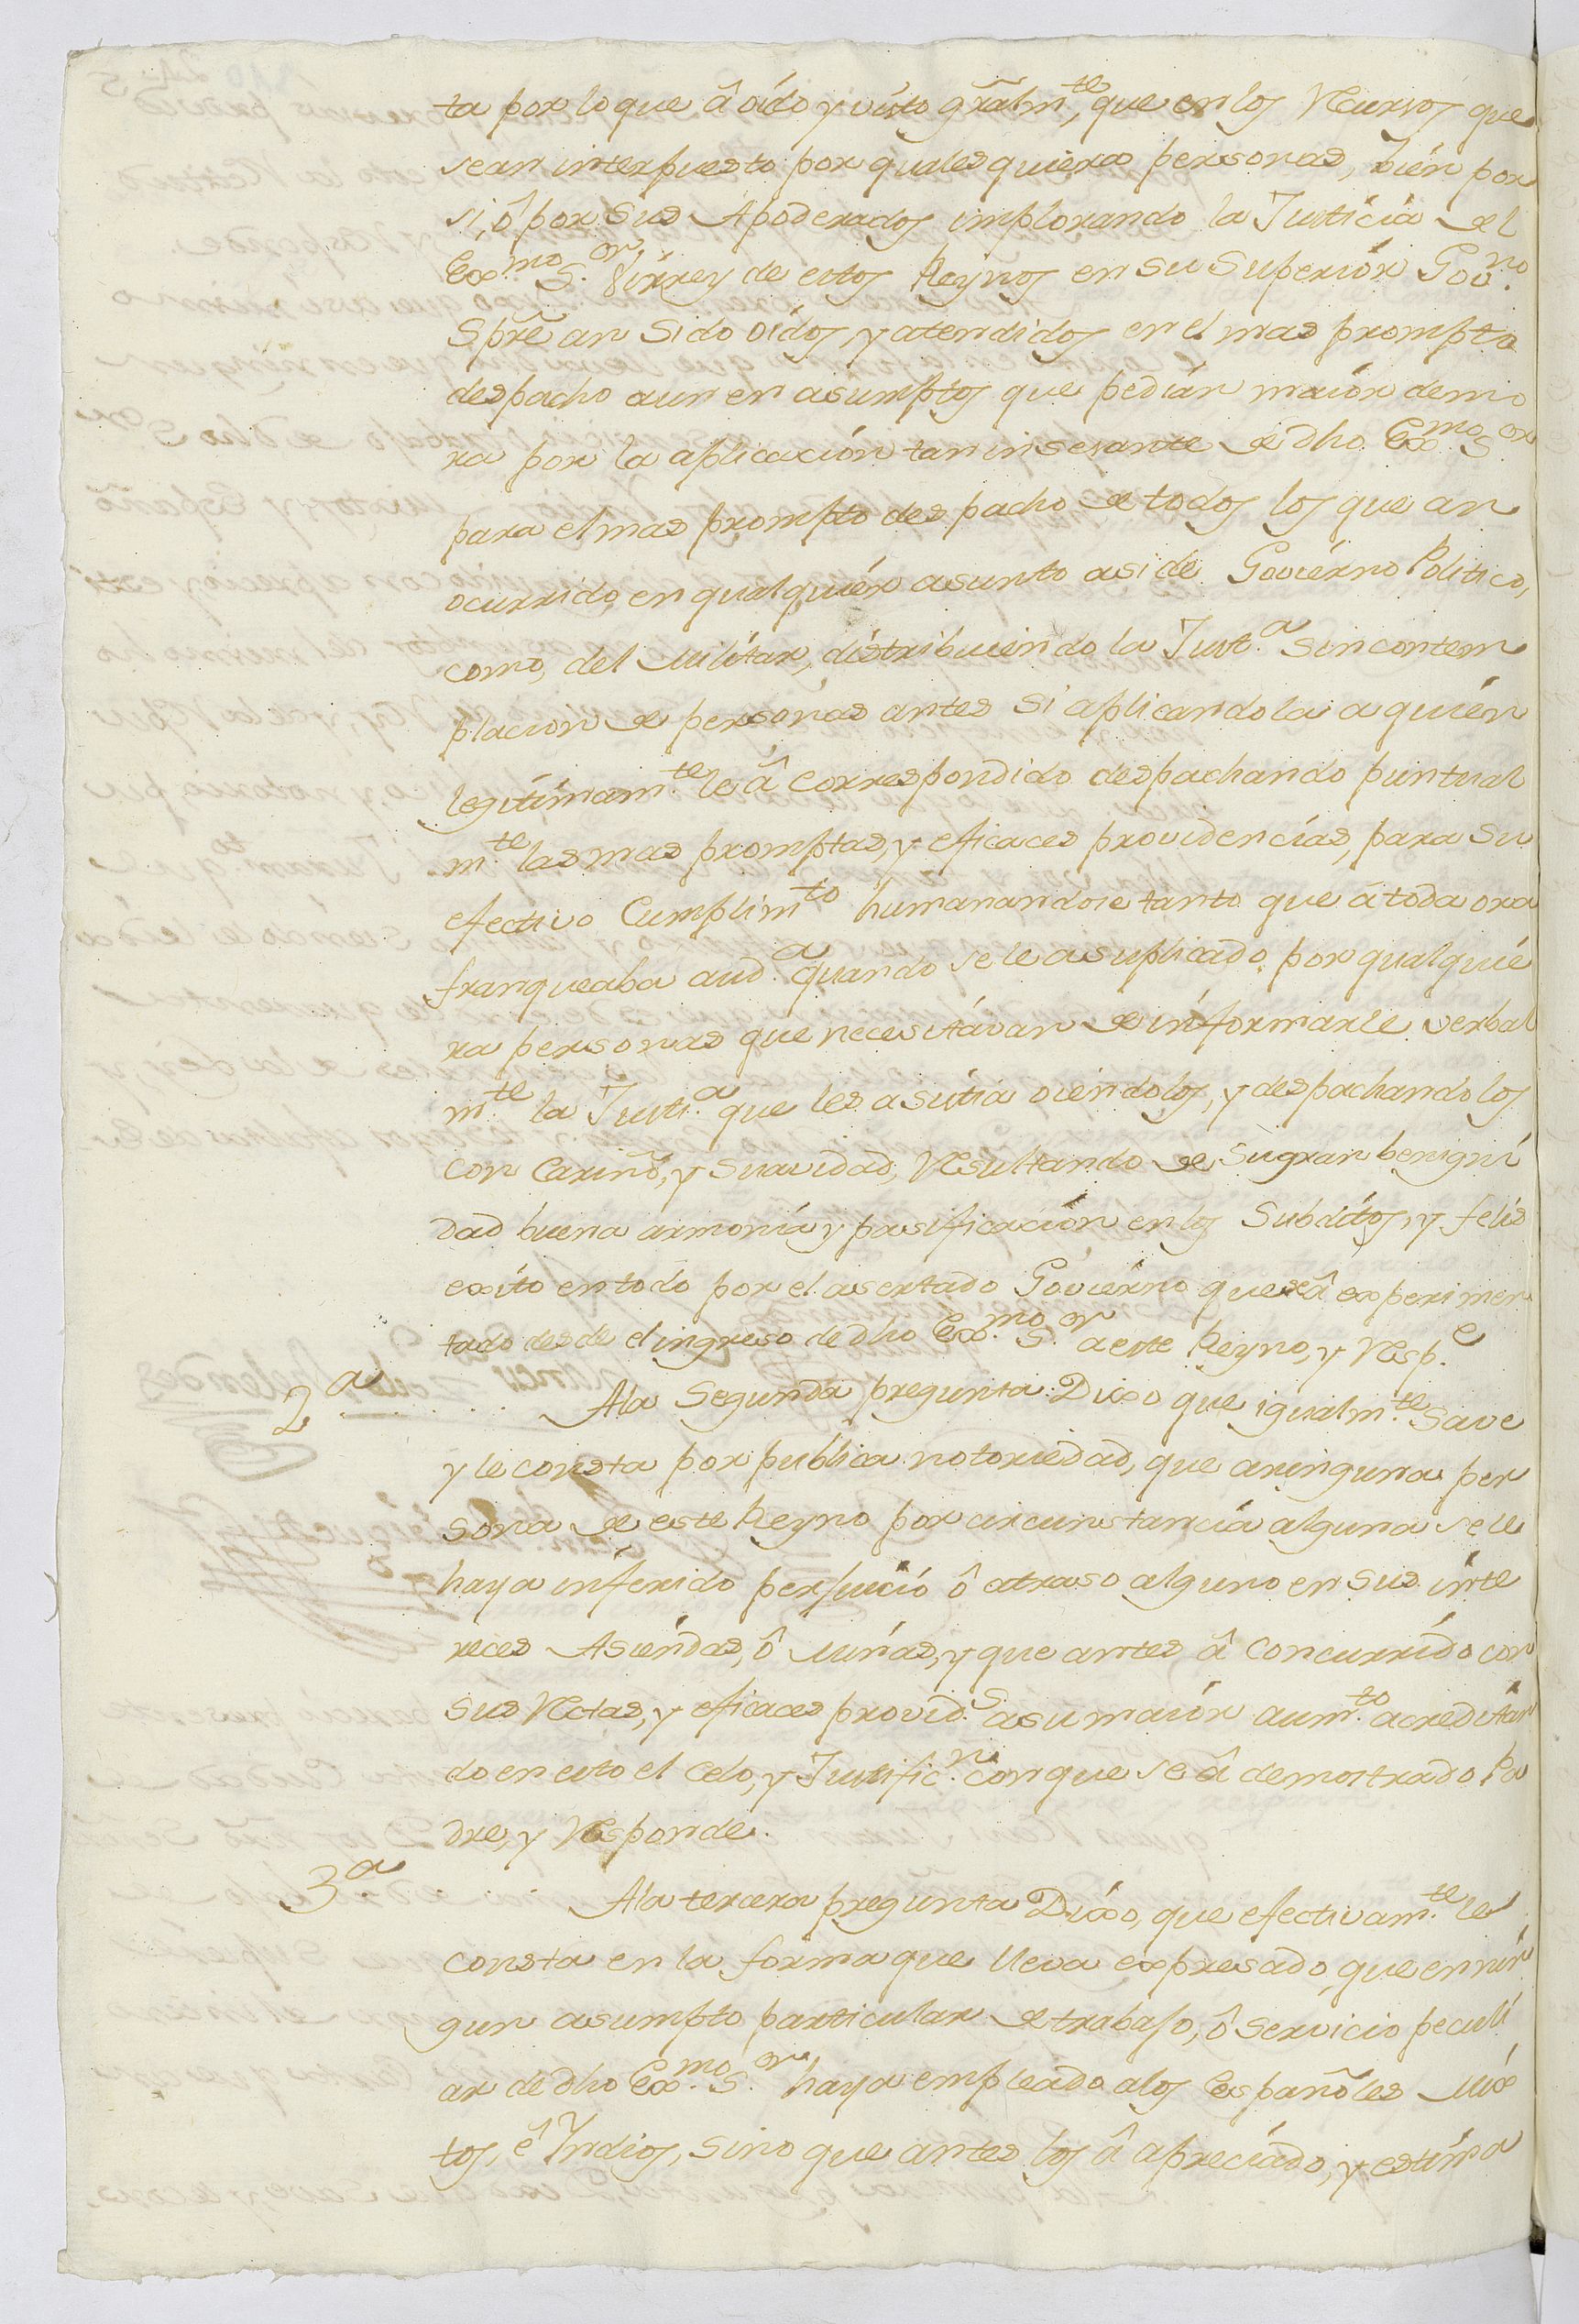 ta por lo que â oído y visto gralm.te, que en los Recursos que
sean interpuesto por qualesquiera personas, bien por
si, ô por sus Apoderados implorando la Justicia del
Exmo. S.or Virrey de estos Reynos en su Superior Gov.no
Spre an sido oídos, y atendidos en el mas prompto
despacho aun en asumptos que pedian maior demo
ra por la aplicación tan insesante de dho Exmo. S.or
para el mas prompto despacho de todos los que an
ocurrido, en qualquier asunto asi de Govierno Politico,
como, del Militar, distribuiendo la Just.a sin contem
placion de personas antes si aplicandola a quien
legitimam.te le â correspondido despachando puntual
m.te las mas promptas, y eficaces providencias, para su
efectivo Cumplim.to humanandose tanto que â toda ora
franqueaba aud.a quando se le a suplicado por qualquie
ra personas que necesitavan de informarle verbal
m.te la Justi.a que les asistia oiendolos, y despachandolos
con Cariño, y suavidad, Resultando de su gran benigni
dad buena armonia y pasificacion en los Subditos, y felis
exito en todo por el asertado Govierno que se â experimen
tado desde el ingreso de dho Exmo. S.or a este Reyno, y Resp.e
2.a A la Segunda pregunta: Dixo que igualm.te save
y le consta por publica notoriedad, que a ninguna per
sona de este Reyno por circunstancia alguna se le
haya inferido perjuicio ô atraso alguno en sus inte
reces Asiendas, ô Minas, y que antes â concurrido con
sus Rectas, y eficaces provid.s a su maior aum.to acreditan
do en esto el celo, y Justific.n con que se â demostrado Pa
dre, y Responde.
3.a A la tercera pregunta Dixo, que efectivam.te le
consta en la forma que lleva expresado, que en nin
gun asumpto particular de trabajo, ô servicio peculi
ar de dho Exmo. S.or haya empleado a los Españoles Mix
tos, ê Yndios, sino que antes los â apreciado, y estima